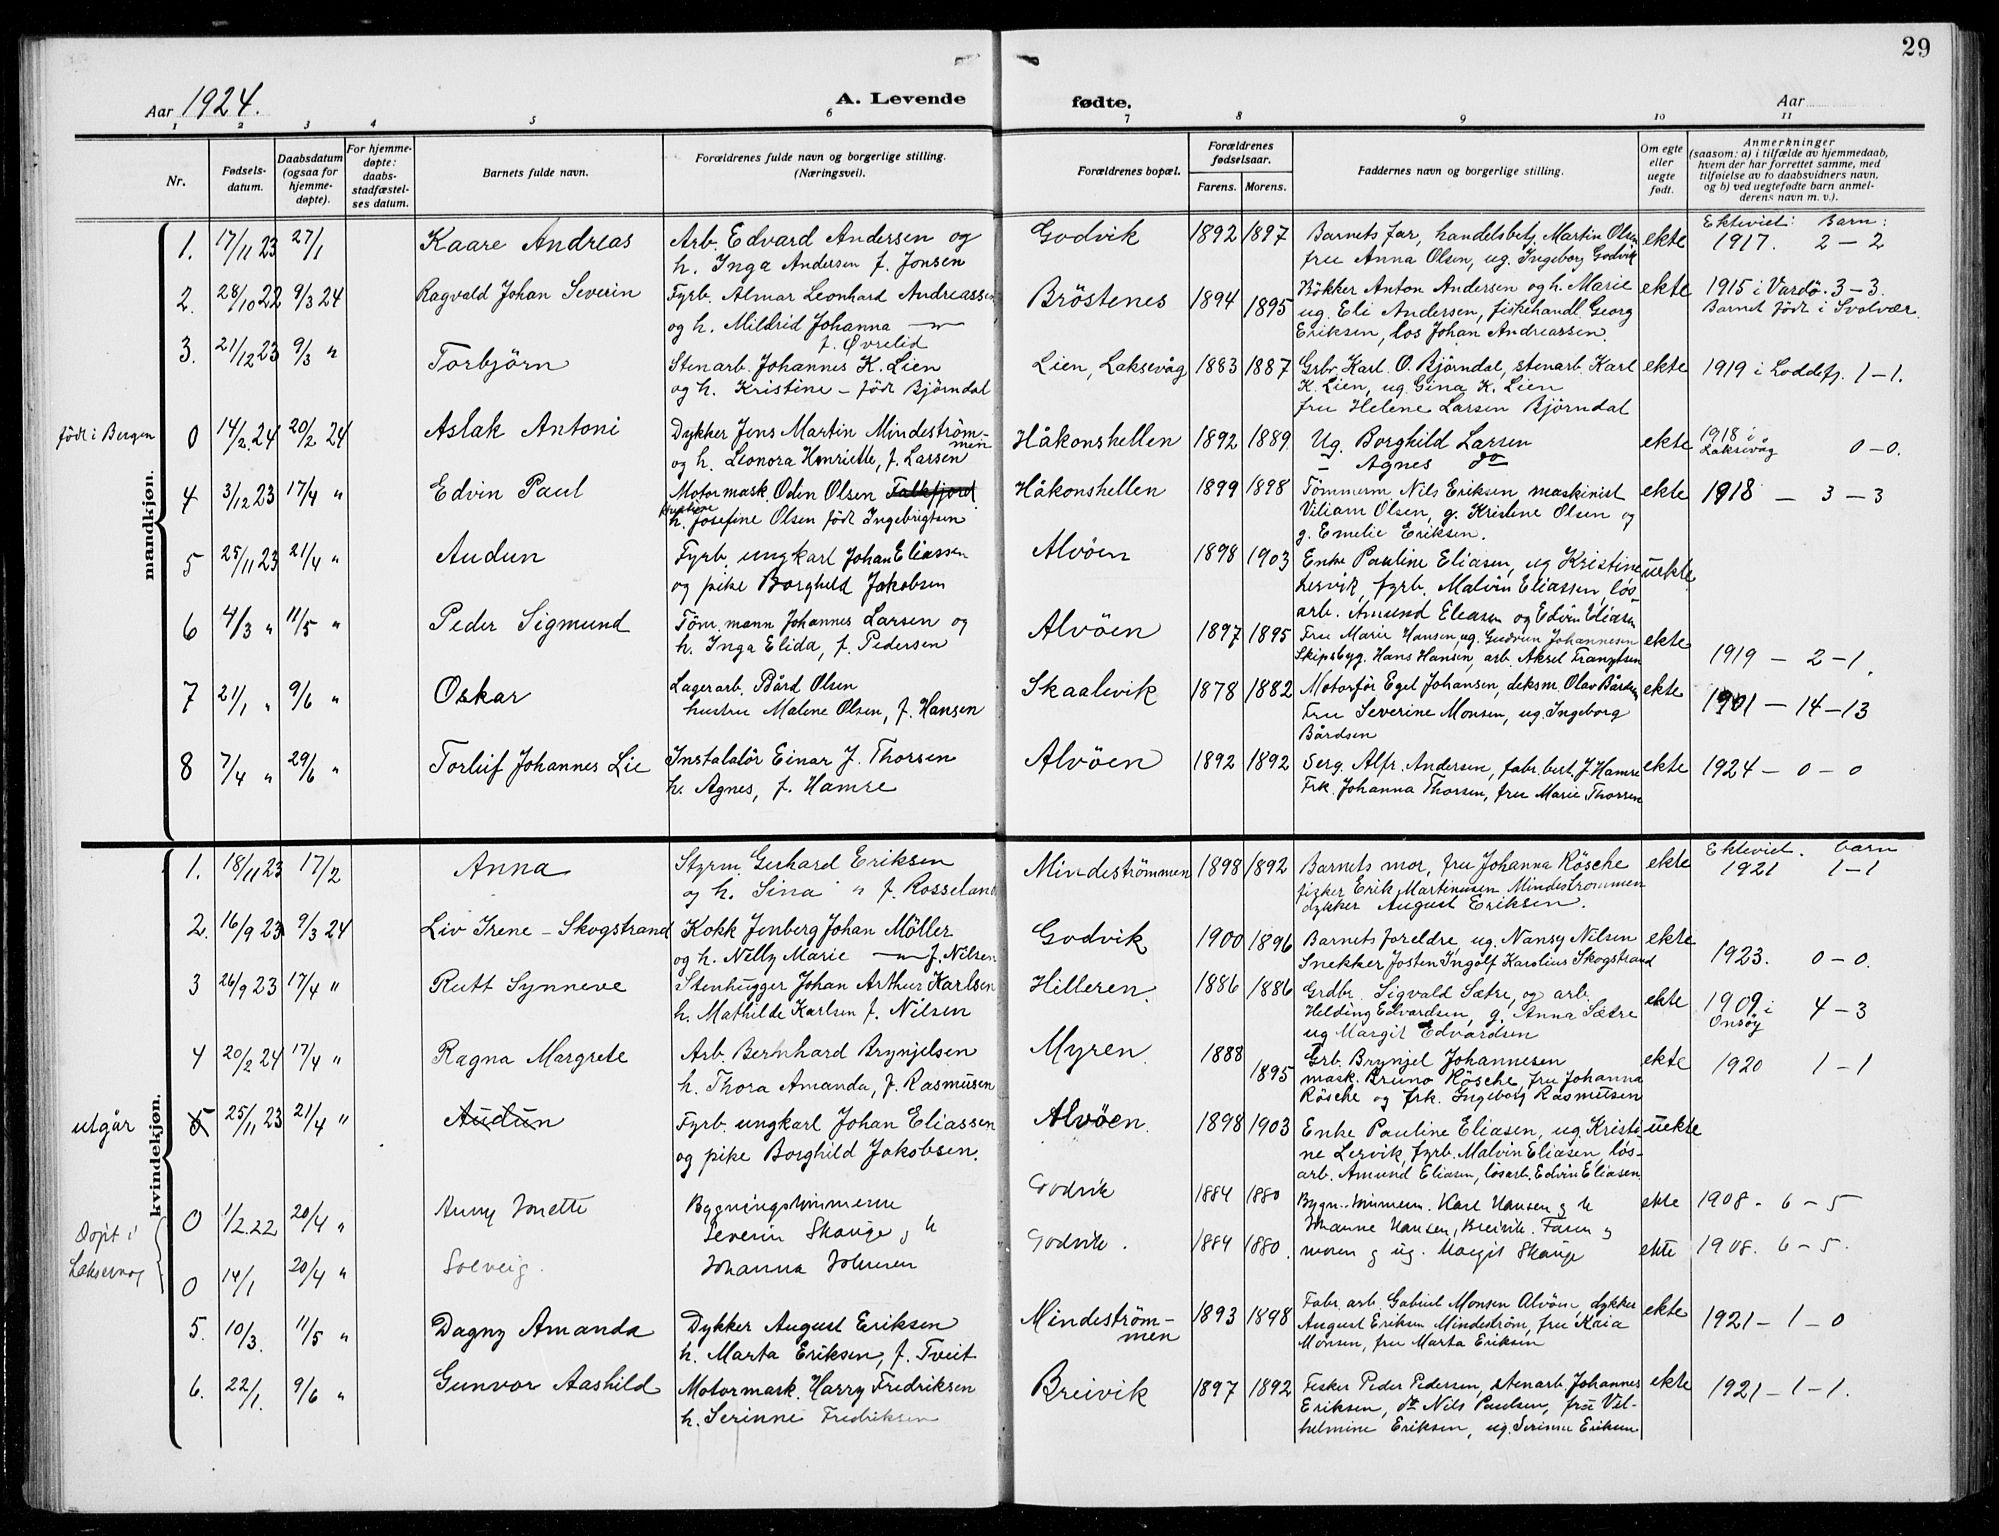 29
Aar 1924.
A. Levende
fødte.
Aar
1 2 3 4 5 6 7 8 9 10 11
Nr.
Fødsels-
datum.
Daabsdatum
(ogsaa for
hjemme-
døpte).
For hjemme-
døpte:
daabs-
stadfæstel-
ses datum.
Barnets fulde navn.
Forældrenes fulde navn og borgerlige stilling.
(Næringsvei).
Forældrenes bopæl.
Forældrenes
fødselsaar.
Farens. Morens.
Faddernes navn og borgerlige stilling.
Om egte
eller
uegte
født.
Anmerkninger
(saasom: a) i tilfælde av hjemmedaab,
hvem der har forrettet samme, med
tilføielse av to daabsvidners navn,
og b) ved uegtefødte barn anmel-
derens navn m. v.).
mandkjøn.
Ektevied: Barn:
1. 17/11 23 27/1 Kaare Andreas Arb. Edvard Andersen og Godvik 1892 1897 Barnets far, handelsbetj. Martin Olsen ekte 1917. 2 – 2
h. Inga Andersen f. Jonsen fru Anna Olsen, ug. Ingeborg Godvik
2. 28/10 22 9/3 24 Ragvald Johan Severin Fyrb. Almar Leonhard Andreassen Bröstenes 1894 1895 Bökker Anton Andersen og h. Marie ekte 1915 i Vardö. 3 – 3.
og h. Mildrid Johanna — ug. Eli Andersen, fiskehandl. Georg Barnet födt i Svolvær.
f. Øvrelid Eriksen, los Johan Andreassen.
3. 21/12 23 9/3 " Torbjörn Stenarb. Johannes K. Lien Lien, Laksevåg 1883 1887 Grbr. Karl. O. Björndal, stenarb. Karl ekte 1919 i Loddefj. 1 – 1.
og h. Kristine – födt Björndal K. Lien, ug. Gina K. Lien
fru Helene Larsen Björndal
födt i Bergen 0 14/2 24 20/2 24 Aslak Antoni Dykker Jens Martin Mindeström- Håkonshellen 1892 1889 Ug. Borghild Larsen ekte 1918 i 0 – 0.
men
og h. Leonora Henriette, f. Larsen – Agnes do Laksevåg
4 3/12 23 17/4 " Edvin Paul Motormask. Oden Olsen Falkfjord Håkonshellen 1899 1898 Tömmerm Nils Eriksen maskinist ekte 1918 – 3 – 3
Kristine
h. Josefine Olsen födt Ingebrigtsen Viliam Olsen, g. Kristine Olsen og
g. Emelie Eriksen.
5 25/11 23 21/4 " Audun Fyrb. ungkarl Johan Eliassen Alvöen 1898 1903 Enke Pauline Eliasen, ug Kristine uekte
og pike Borghild Jakobsen Lervik, fyrb. Malvin Eliassen, lös-
arb. Amund Eliasen og Edvin Eliasen
6 4/3 " 11/5 " Peder Sigmund Töm. mann Johannes Larsen og Alvöen 1897 1895 Fru Marie Hansen, ug. Gudrun Johannesen ekte 1919 – 2 – 1.
h. Inga Elida, f. Pedersen Skipsbyg. Hans Hansen, arb. Aksel Frantzsen
7 21/1 " 9/6 " Oskar Lagerarb. Bård Olsen Skaalevik 1878 1882 Motorför Egel Johansen, deksm. Olav Bårdsen ekte 1901 – 14 – 13
hustru Malene Olsen, f. Hansen Fru Severine Monsen, ug. Ingeborg
Bårdsen
8 7/4 " 29/6 " Torleif Johannes Lie Instalatör Einar J. Thorsen Alvöen 1892 1892 Serg. Alfr. Andersen, fabr. best. J. Hamre ekte 1924 – 0 – 0
h. Agnes, f. Hamre Frk. Johanna Thorsen, fru Marie Thorsen
kvindekjøn.
Ektevied. barn
1. 18/11 23 17/2 Anna Styrm. Gerhard Eriksen Mindeströmmen 1898 1892 Barnets mor, fru Johanna Rösche ekte 1921 1 – 1
og h. Sina " f. Rosseland fisker Erik Martinusen Mindeströmmen
dykker August Eriksen.
2. 16/9 23 9/3 24 Liv Irene – Skogstrand Kokk Jenberg Johan Möller Godvik 1900 1896 Barnets foreldre, ug. Nansy Nilsen ekte 1923. 0 – 0.
og h. Nelly Marie — f. Nilsen Snekker Josten Ingolf Karolius Skogstrand
3 26/9 23 17/4 " Rutt Synneve Stenhugger Johan Arthur Karlsen Hilleren. 1886 1886 Grdbr. Sigvald Sætre, og arb. ekte 1909 i 4 – 3
h. Mathilde Karlsen f. Nilsen Helding Edvardsen, g. Anna Sætre Onsöy
ug Margit Edvardsen
4 20/2 24 17/4 " Ragna Margrete Arb. Bernhard Brynjelsen Myren. 1888 1895 Grb. Brynjel Johannesen ekte 1920 1 – 1
h. Thora Amanda, f. Rasmusen mask. Bruno Rösche, fru Johanna
Rösche og frk. Ingeborg Rasmusen
utgår 5 25/11 23 21/4 " Audun Fyrb. ungkarl Johan Eliassen Alvöen. 1898 1903 Enke Pauline Eliasen, ug. Kristi- uekte
og pike Borghild Jakobsen. ne Lervik, fyrb. Malvin Eliasen, lös-
arb. Amund Eliasen, lösarb. Edvin Eliasen
Döpt i Laksevåg 0 1/2 22 20/4 " Anny Jonette Bygningstömmerm Godvik 1884 1880 Bygn. tömmerm. Kare Hansen og h ekte 1908 – 6 – 5
Severin Skauge og h Johanne Hansen, Breivik. Faren og
0 14/1 20/4 " Solveig. Johanna Johnsen Godvik. 1884 1880. moren og ug. Margit Skauge ekte 1908. 6 – 5.
5. 10/3. 11/5 " Dagny Amanda Dykker August Eriksen Mindeström- 1893 1898 Fabr. arb. Gabriel Monsen Alvöen, dykker ekte 1921 – 1 – 0
men
h. Marta Eriksen, f. Tveit August Eriksen Mindeström, fru Kaia
Monsen, fru Marta Eriksen
6. 22/1. 9/6 " Gunvor Aashild Motormask. Harry Fredriksen Breivik 1897 1892 Fisker Peder Pedersen, stenarb. Johannes ekte 1921 – 1 – 1.
h. Serinne Fredriksen Eriksen, do Nils Paulsen, fru Vil-
helmine Eriksen, ug. Serinne Eriksen